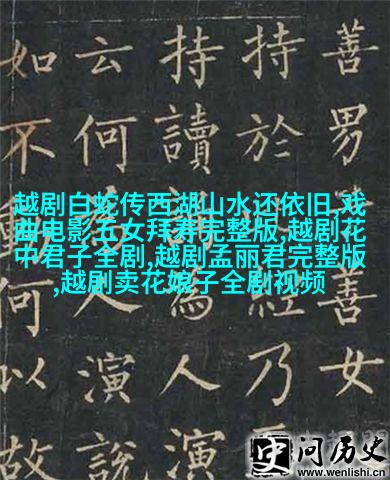 越剧白蛇传西湖山水还依旧,戏
曲电影五女拜寿完整版,越剧花
中君子全剧,越剧孟丽君完整版
,越剧卖花娘子全剧视频
善男善女
持於乃
持讀為人演
云何人演說
如不何以故
史问历史
www.wenlishi.cn